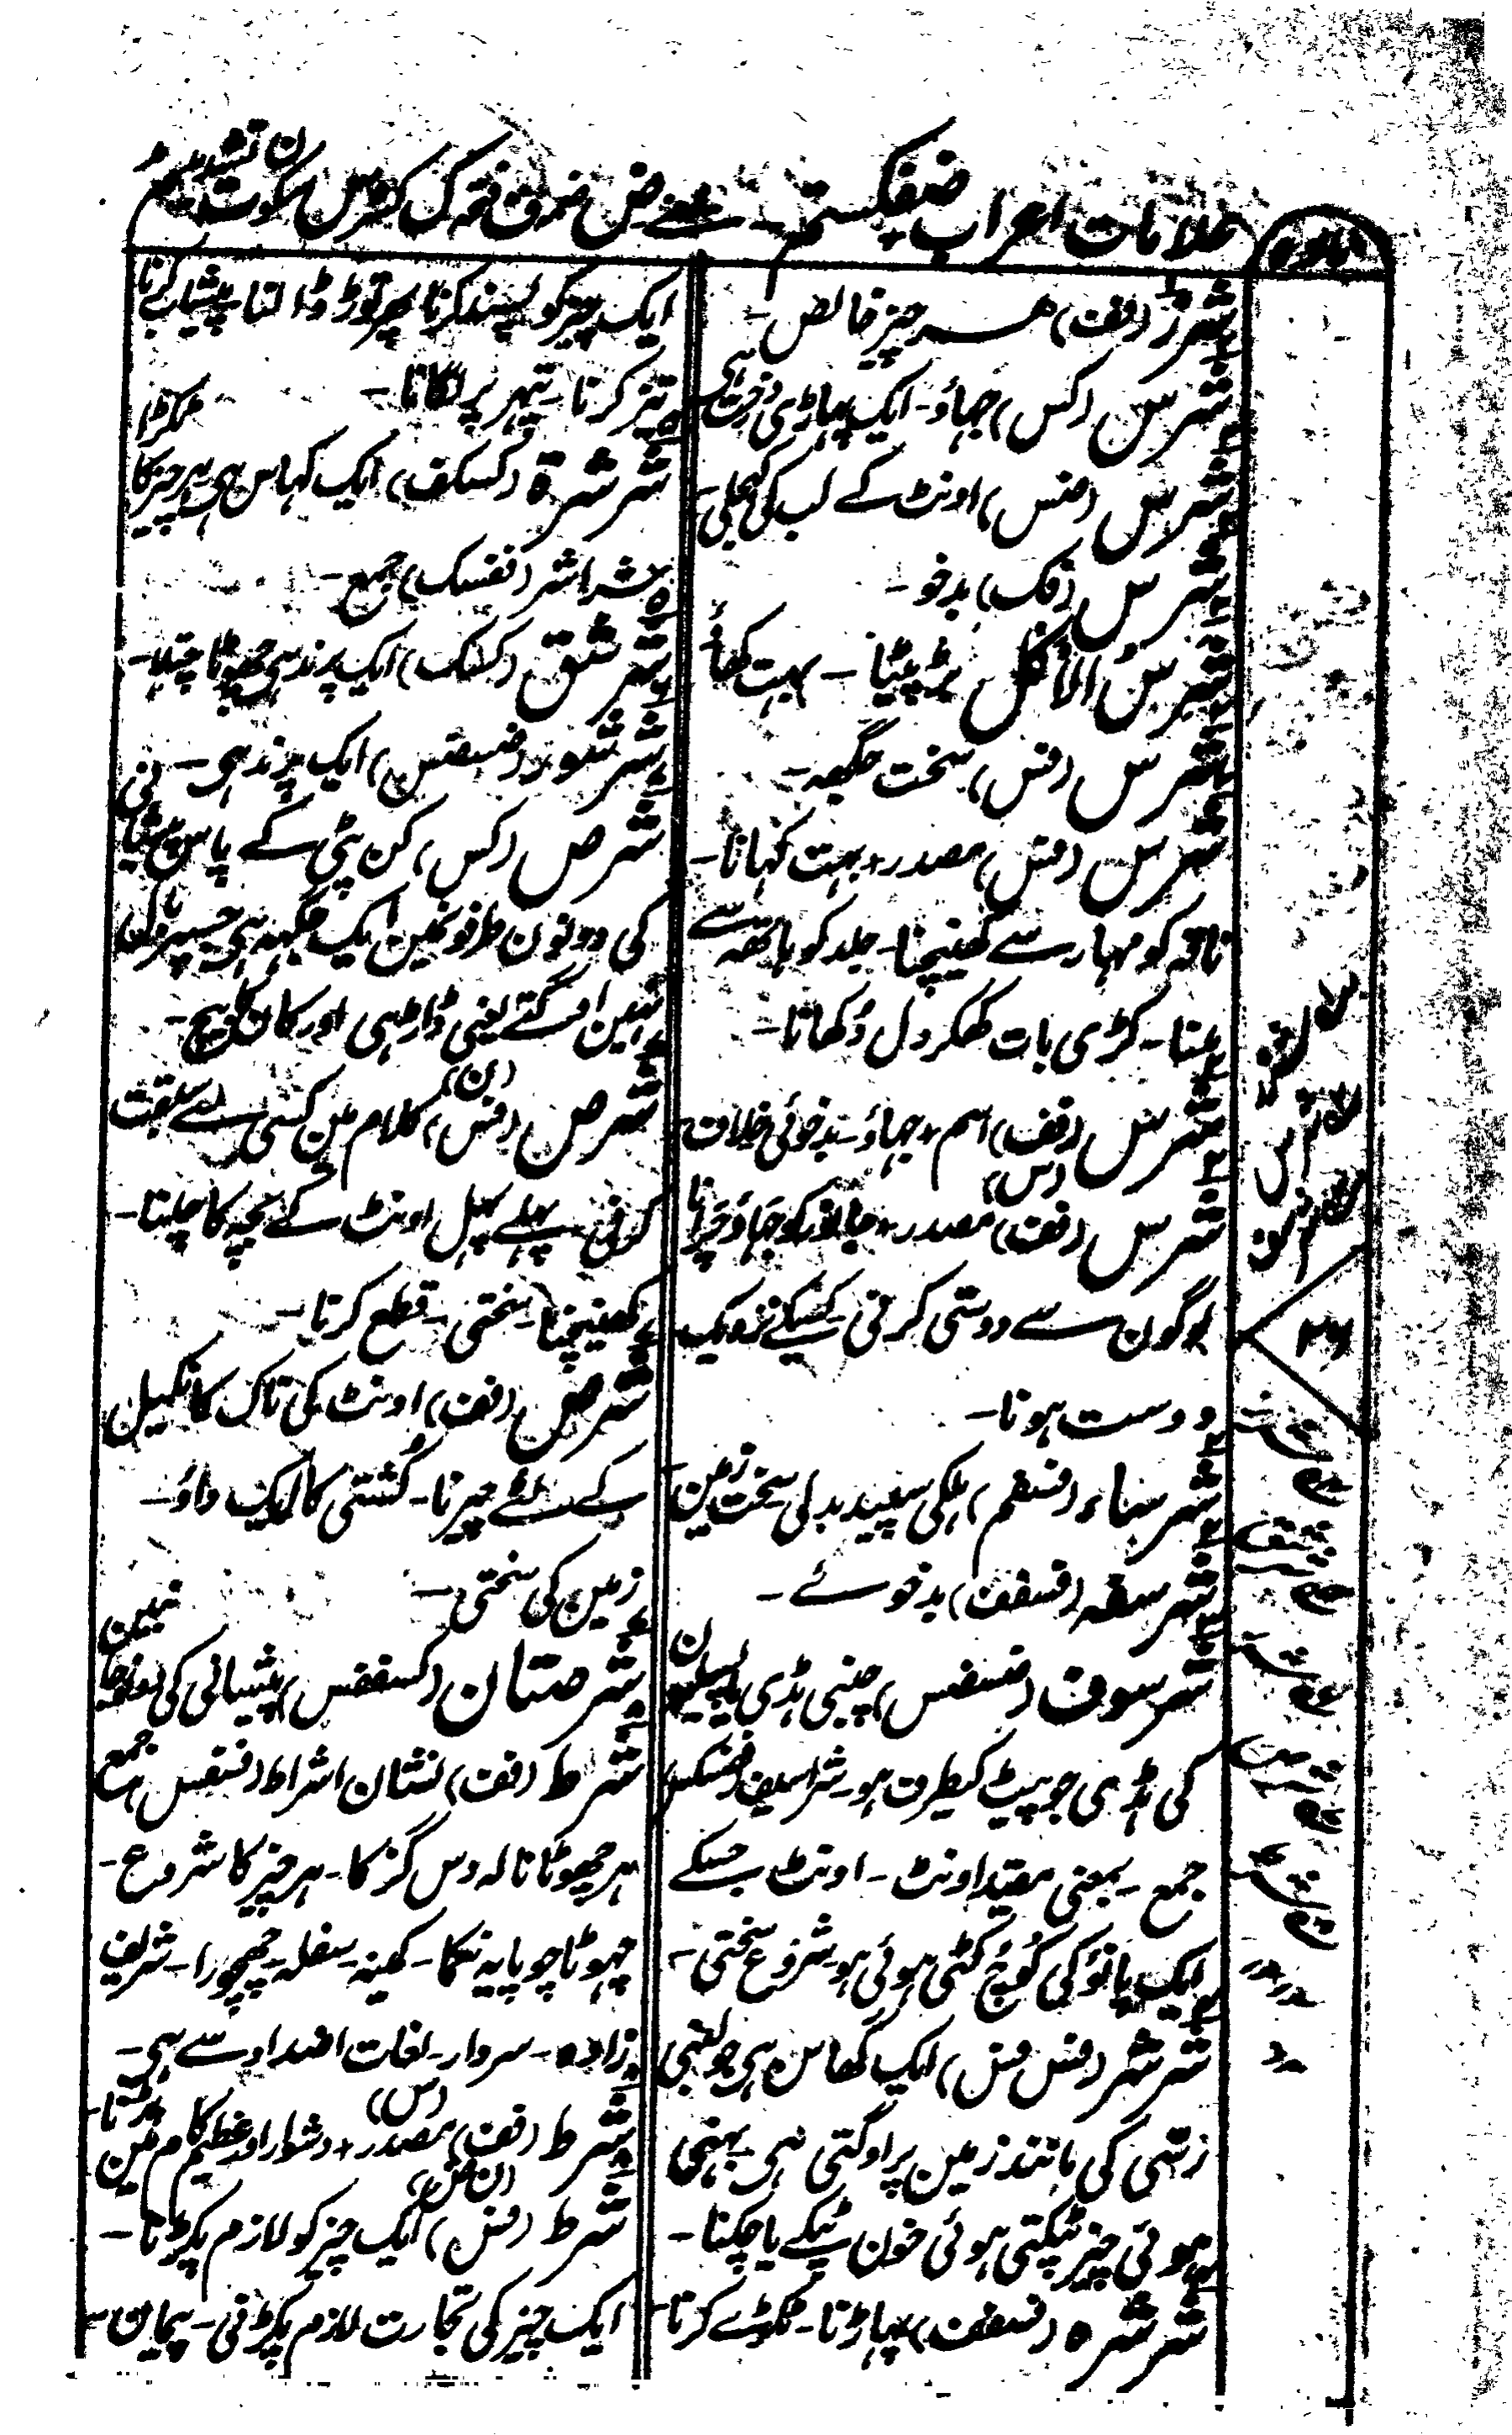 علامات اعراب ضفکستم۔ یعنے ض ضمہ ف فتحہ ک کسرہ س سکوت
ن تشدید
مادہ
شرز (فف) ہر چیز خالص۔
شرس (کس) جہاؤ۔ ایک پہاڑی درخت ہی
شرس (ضس) اونٹ کے لب کی کھجلی۔
شرس (فک) بدخو۔
شرس الاکل پڑپیٹا۔ بہت کھاؤ
شرس (فس) سخت جگہہ۔
شرس (فس) مصدر، بہت کہانا۔
ناقہ کو مہار سے کھینچنا۔ جلد کو ہاتھہ سے
ملنا۔ کڑی بات کھکر دل دُکھانا۔
شرس (فف) اسم، جہاؤ۔ بدخوئی خلاف
(س)
شرس (فف) مصدر، جانور کو جہاؤ چرانا
لوگون سے دوستی کرنی۔ کسیکے نزدیک
دوست ہونا۔
شرساء (فسفم) ہلکی سپید بدلی سخت زمین
شرسفہ (فسفف) بدخوئے۔
شرسوف (ضسضس) چینی ہڈی یا پسلیون
کی ہڈی جو پیٹ کیطرف ہو۔ شراسیف
جمع۔ بمعنی مقید اونٹ۔ اونٹ جسکے
ایک پانؤ کی کُونچ کٹی ہوئی ہو۔ شروع سختی۔
شرشر (فس فس) ایک گھاس ہی جو لنبی
رسّی کی مانند زمین پر اوگتی ہی۔ بہتی
ہوئی چیز ٹپکتی ہوئی خون ٹپکے یا چکنا۔
شرشرہ (فسفف) پہاڑنا۔ ٹکڑے کرنا
ایک چیز کو پسند کرنا پھر توڑ ڈالنا۔ پیشاب کرنا
تیز کرنا۔ پتہر پر لگانا۔
شرشرۃ (کسکف) ایک گہاس ہی ہر چیز کا
ٹکڑا
شراشر (ففسک) جمع۔
شرشق (کسک) ایک پرند ہی چھوٹا چتلا۔
شرشور (ضسضس) ایک پرند ہی۔
شرص (کس) کن پٹی کے پاس پیشانی
کی دونون طرفونمین ایک جگہہ ہی جسپر بال
نہین اوگتے یعنی ڈارھی اور کان کے بیچ۔
(ن)
شرص (فس) کلام مین کسی سے سبقت
کرنی۔ پہلے پہل اونٹ کے بچہ کا چلنا۔
کھینچنا۔ سختی۔ قطع کرنا۔
شرص (فف) اونٹ کی ناک کا نکیل
کے لئے چیرنا۔ کُشتی کا ایک داؤ۔
زمین کی سختی۔
شرصتان (کسففس) پیشانی کی دونو جانبین
شرط (فف) نشان اشراط (فسفس) جمع
ہر چھوٹا نالہ دس گز کا۔ ہر چیز کا شروع۔
چھوٹا چوپایہ نکما۔ کمینہ۔ سفلہ۔ چھچھورا۔ شریف
زادہ۔ سردار۔ لغات اضداد سے ہی۔
(س)
شرط (فف) مصدر، دشوار اور عظیم کام مین پڑنا۔
(ن ض)
شرط (فس) ایک چیز کو لازم پکڑنا۔
ایک چیز کی تجارت لازم پکڑنی۔ پیمان